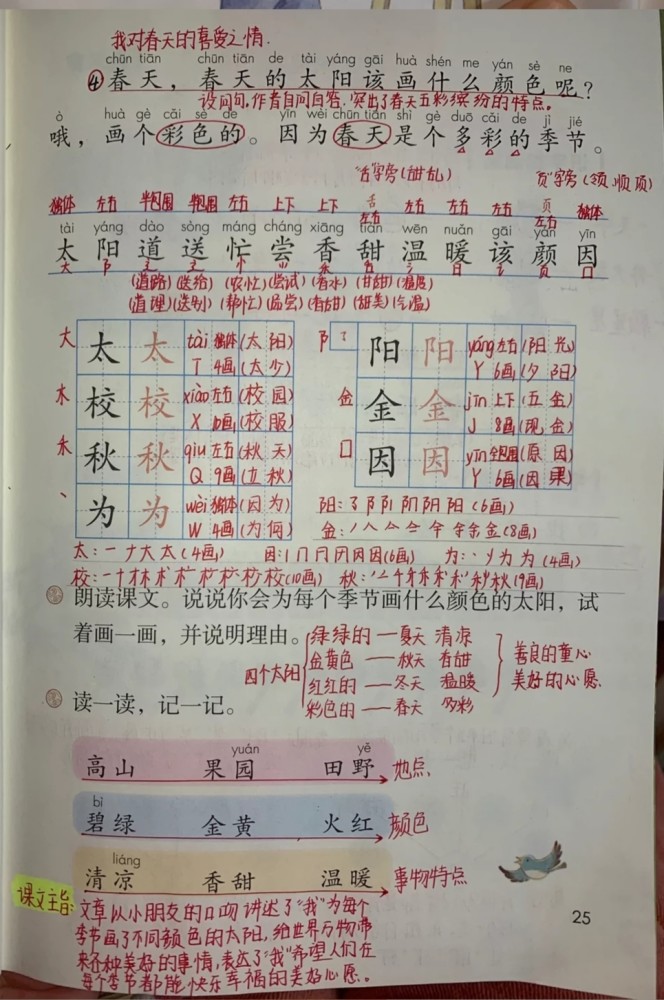 我对春天的喜爱之情.
chūn tiān chūn tiān de tài yáng gāi huà shén me yán sè ne
④春天，春天的太阳该画什么颜色呢？
设问句,作者自问自答.突出了春天五彩缤纷的特点。
ò huà gè cǎi sè de yīn wèi chūn tiān shì gè duō cǎi de jì jié
哦，画个彩色的。因为春天是个多彩的季节。
"舌"字旁(甜乱) 页字旁(领.顺顶)
独体 左右 半包围 半包围 左右 上下 上下 舌左右 左右 左右 左右 页左右 独体
tài yáng dào sòng máng cháng xiāng tián wēn nuǎn gāi yán yīn
太 阳 道 送 忙 尝 香 甜 温 暖 该 颜 因
(道路) (送给) (农忙) (尝试) (香水) (甘甜) (温度)
(道理) (送别) (帮忙) (品尝) (香甜) (甜美) (气温)
大 太 太 tài 独体 (太阳) 阝 阳 阳 yáng 左右 (阳光)
T 4画 (太少) Y 6画 (夕阳)
木 校 校 xiào 左右 (校园) 金 金 金 jīn 上下 (五金)
X 10画 (校服) J 8画 (现金)
禾 秋 秋 qiu 左右 (秋天) 囗 因 因 yīn 全包围 (原因)
Q 9画 (立秋) Y 6画 (因果)
丶 为 为 wèi 独体 (因为) 阳: (6画)
W 4画 (为何) 金: (8画)
太: 一ナ大太(4画) 因: (6画) 为: (4画)
校: (10画) 秋: (9画)
朗读课文。说说你会为每个季节画什么颜色的太阳，试
着画一画，并说明理由。
四个太阳
绿绿的 — 夏天 清凉
金黄色 — 秋天 香甜
红红的 — 冬天 温暖
彩色的 — 春天 多彩
善良的童心
美好的心愿
读一读，记一记。
yuán yě
高山 果园 田野 地点
bì
碧绿 金黄 火红 颜色
liáng
清凉 香甜 温暖 事物特点
课文主旨:
文章从小朋友的口吻讲述了"我"为每个
季节画了不同颜色的太阳,给世界万物带
来各种美好的事情,表达了"我"希望人们在
每个季节都能快乐幸福的美好心愿。
25